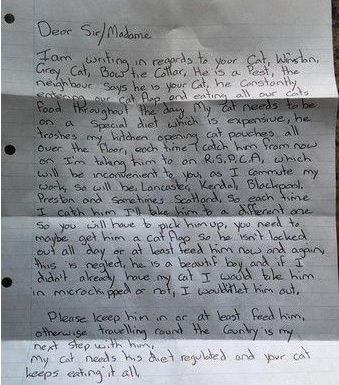 Dear Sir/Madame
I am writing in regards to your Cat, Winston,
Grey Cat, Bow tie Collar, He is a Pest, the
neighbour says he is your Cat, he constantly
entering our cat flap and eating all our cats
food throughout the day, My cat needs to be
on a special diet which is expensive, he
trashes my kitchen opening cat pouches all
over the floor, each time I catch him from now
on I'm taking him to an R.S.P.C.A, which
will be inconvenient to you, as I commute my
work, so will be, Lancaster, Kendal, Blackpool,
Preston and Sometimes Scotland, So each time
I catch him I'll take him to a different one
So you will have to pick him up, you need to
maybe get him a cat flap so he isn't locked
out all day or at least feed him now and again,
this is neglect, he is a beautiful boy and if I
didn't already have my cat I would take him
in microchipped or not, I wouldn't let him out.
Please keep him in or at least feed him,
otherwise travelling round the Country is my
next step with him,
My cat needs his diet regulated and your cat
keeps eating it all,